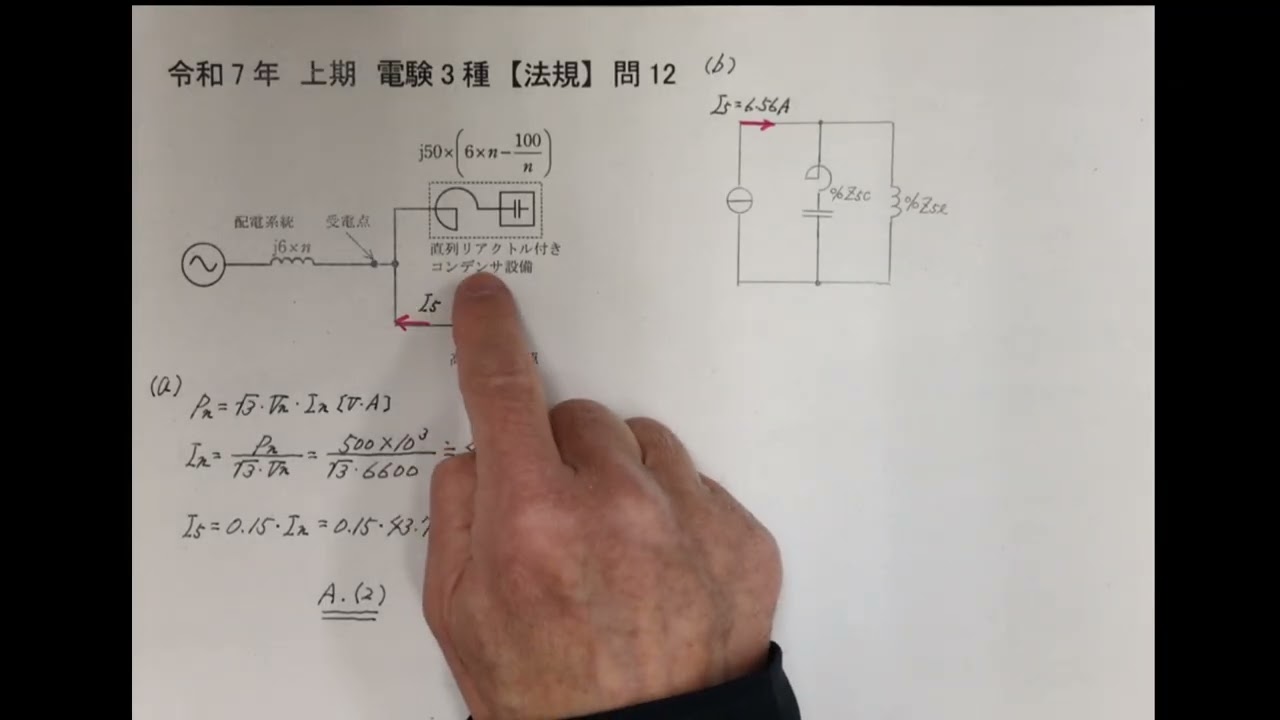 令和7年 上期 電験3種【法規】問12
j50×(6×n−100/n)
配電系統 受電点
j6×n
直列リアクトル付き
コンデンサ設備
I5
(a)
Pn=√3・Vn・In [V・A]
In=Pn/√3・Vn=500×10³/√3・6600≒
I5=0.15・In=0.15・43.7
A.(2)
(b)
I5=6.56A
%Z5C %Z5ℓ